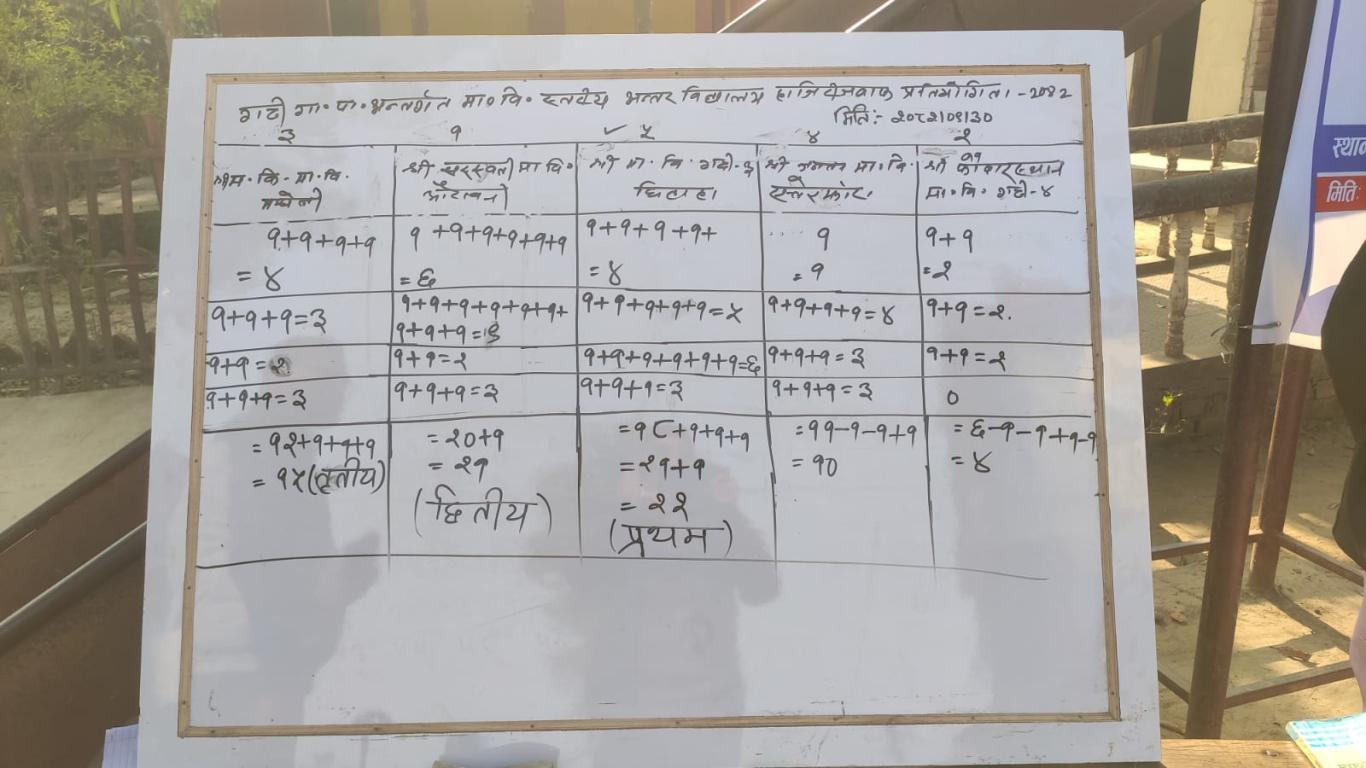 गढी गा. पा. अन्तर्गत मा० वि. स्तरीय अन्तर विद्यालय हाजिरीजवाफ प्रतियोगिता - २०८२
मिति:- २०८२।०९।३०
३ १ ✓ ५ ४ २
मा. वि.
श्री सरस्वती मा वि.
श्री मा. वि. गढी-३
श्री जनता मा. वि.
श्री कोचारस्थान
मा. वि. गढी-४
१+१+१+१
= ४
१ +१+१+१+१+१
= ६
१+१+१+१+
= ४
१
= १
१+१
= २
१+१+१=३
१+१+१+१+१+१+
१+१+१=९
१+१+१+१+१=५
१+१+१+१=४
१+१=२.
१+१=२
१+१=२
१+१+१+१+१+१=६
१+१+१=३
१+१=२
१+१+१=३
१+१+१=३
१+१+१=३
१+१+१=३
०
=१२+१+१+१
= १५(तृतीय)
=२०+१
= २१
(द्वितीय)
=१८+१+१+१
=२१+१
= २२
(प्रथम)
=११-१-१+१
= १०
= ६-१-१+१-१
= ४
स्थान
मिति